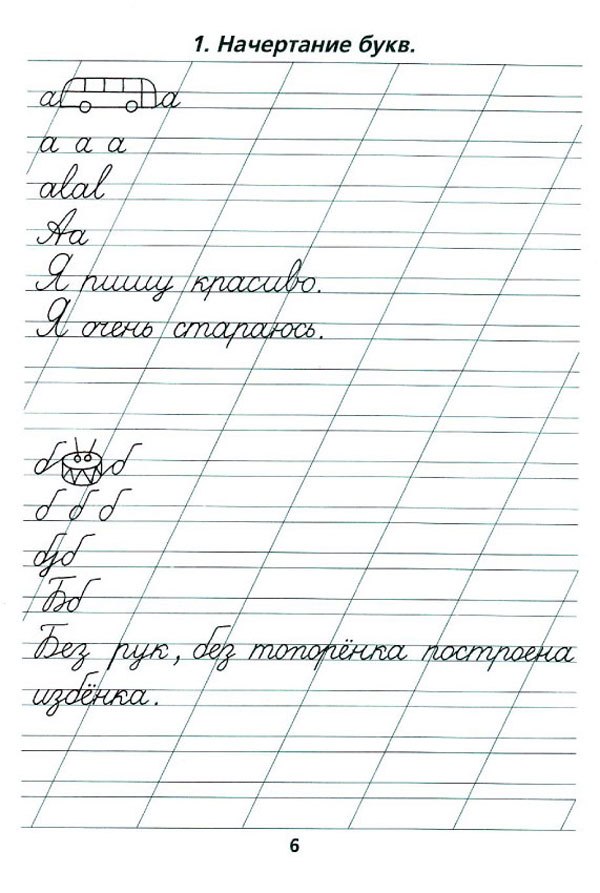 1. Начертание букв.
а а
а а а
аваб
Аа
Я пишу красиво.
Я очень стараюсь.
б б
б б б
бубб
Бб
Без рук, без топорёнка построена
избёнка.
6